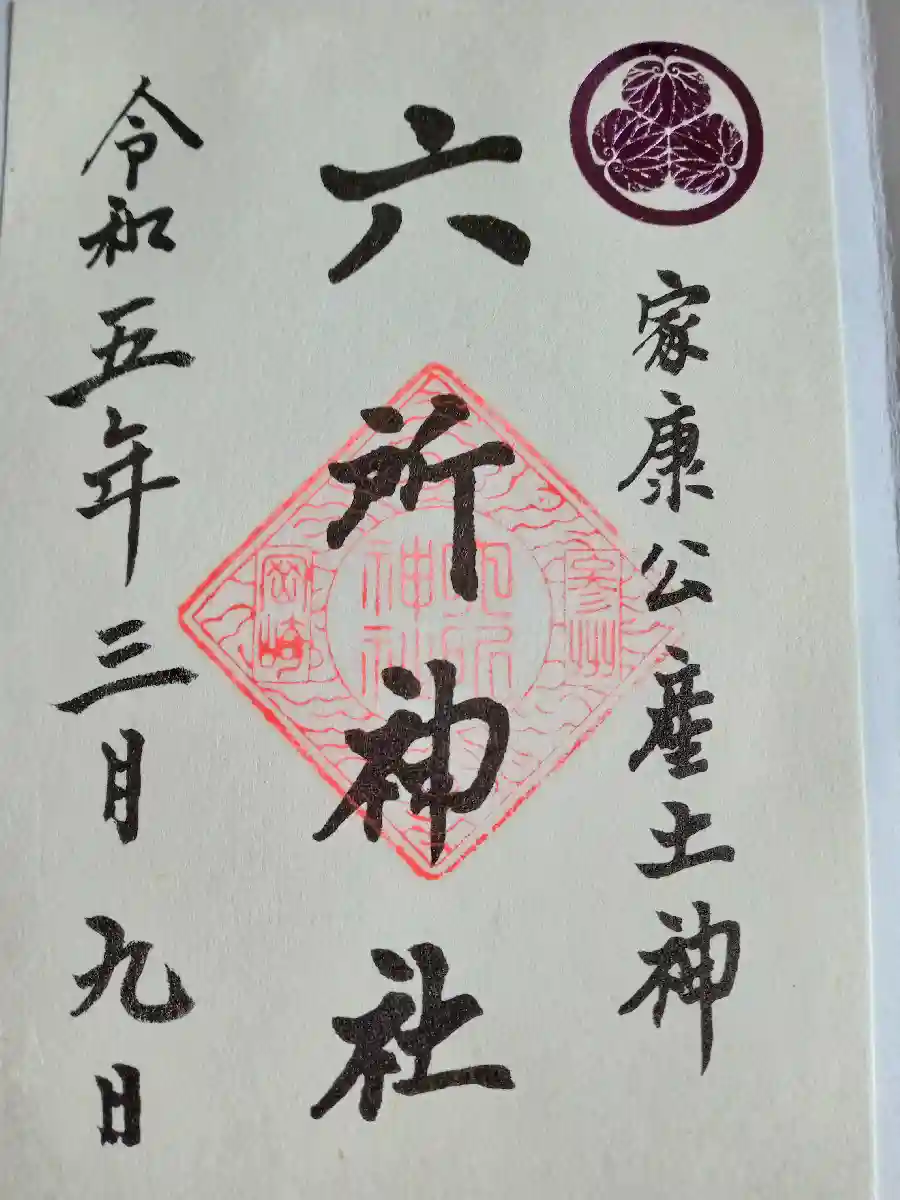 家康公産土神
六所神社
参州
六所
神社
岡崎
令和五年三月九日